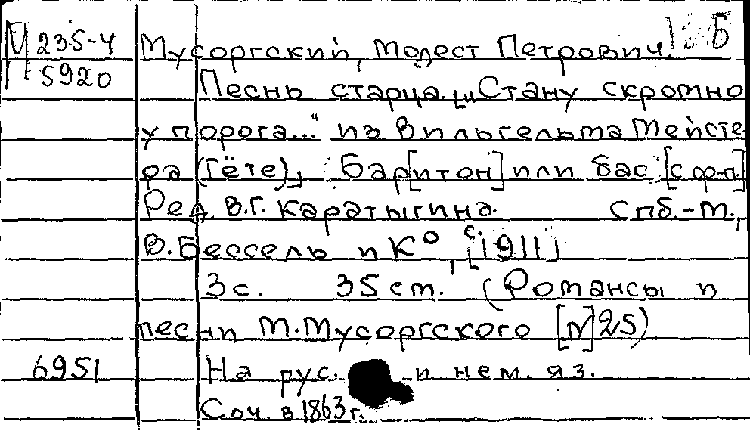 М 235-4
Г 5920
Мусоргский, Модест Петрович. Б
Песнь старца. „Стану скромно
у порога..." из Вильгельма Мейсте-
ра (Гёте), Бар[итон] или бас [с ф-п.]
Ред. В.Г. Каратыгина. Спб.-М.,
В. Бессель и К°, с. [1911]
3 с. 35 см. (Романсы и
песни М. Мусоргского [№] 25)
6951 На рус. и нем. яз.
Соч. в 1863 г.